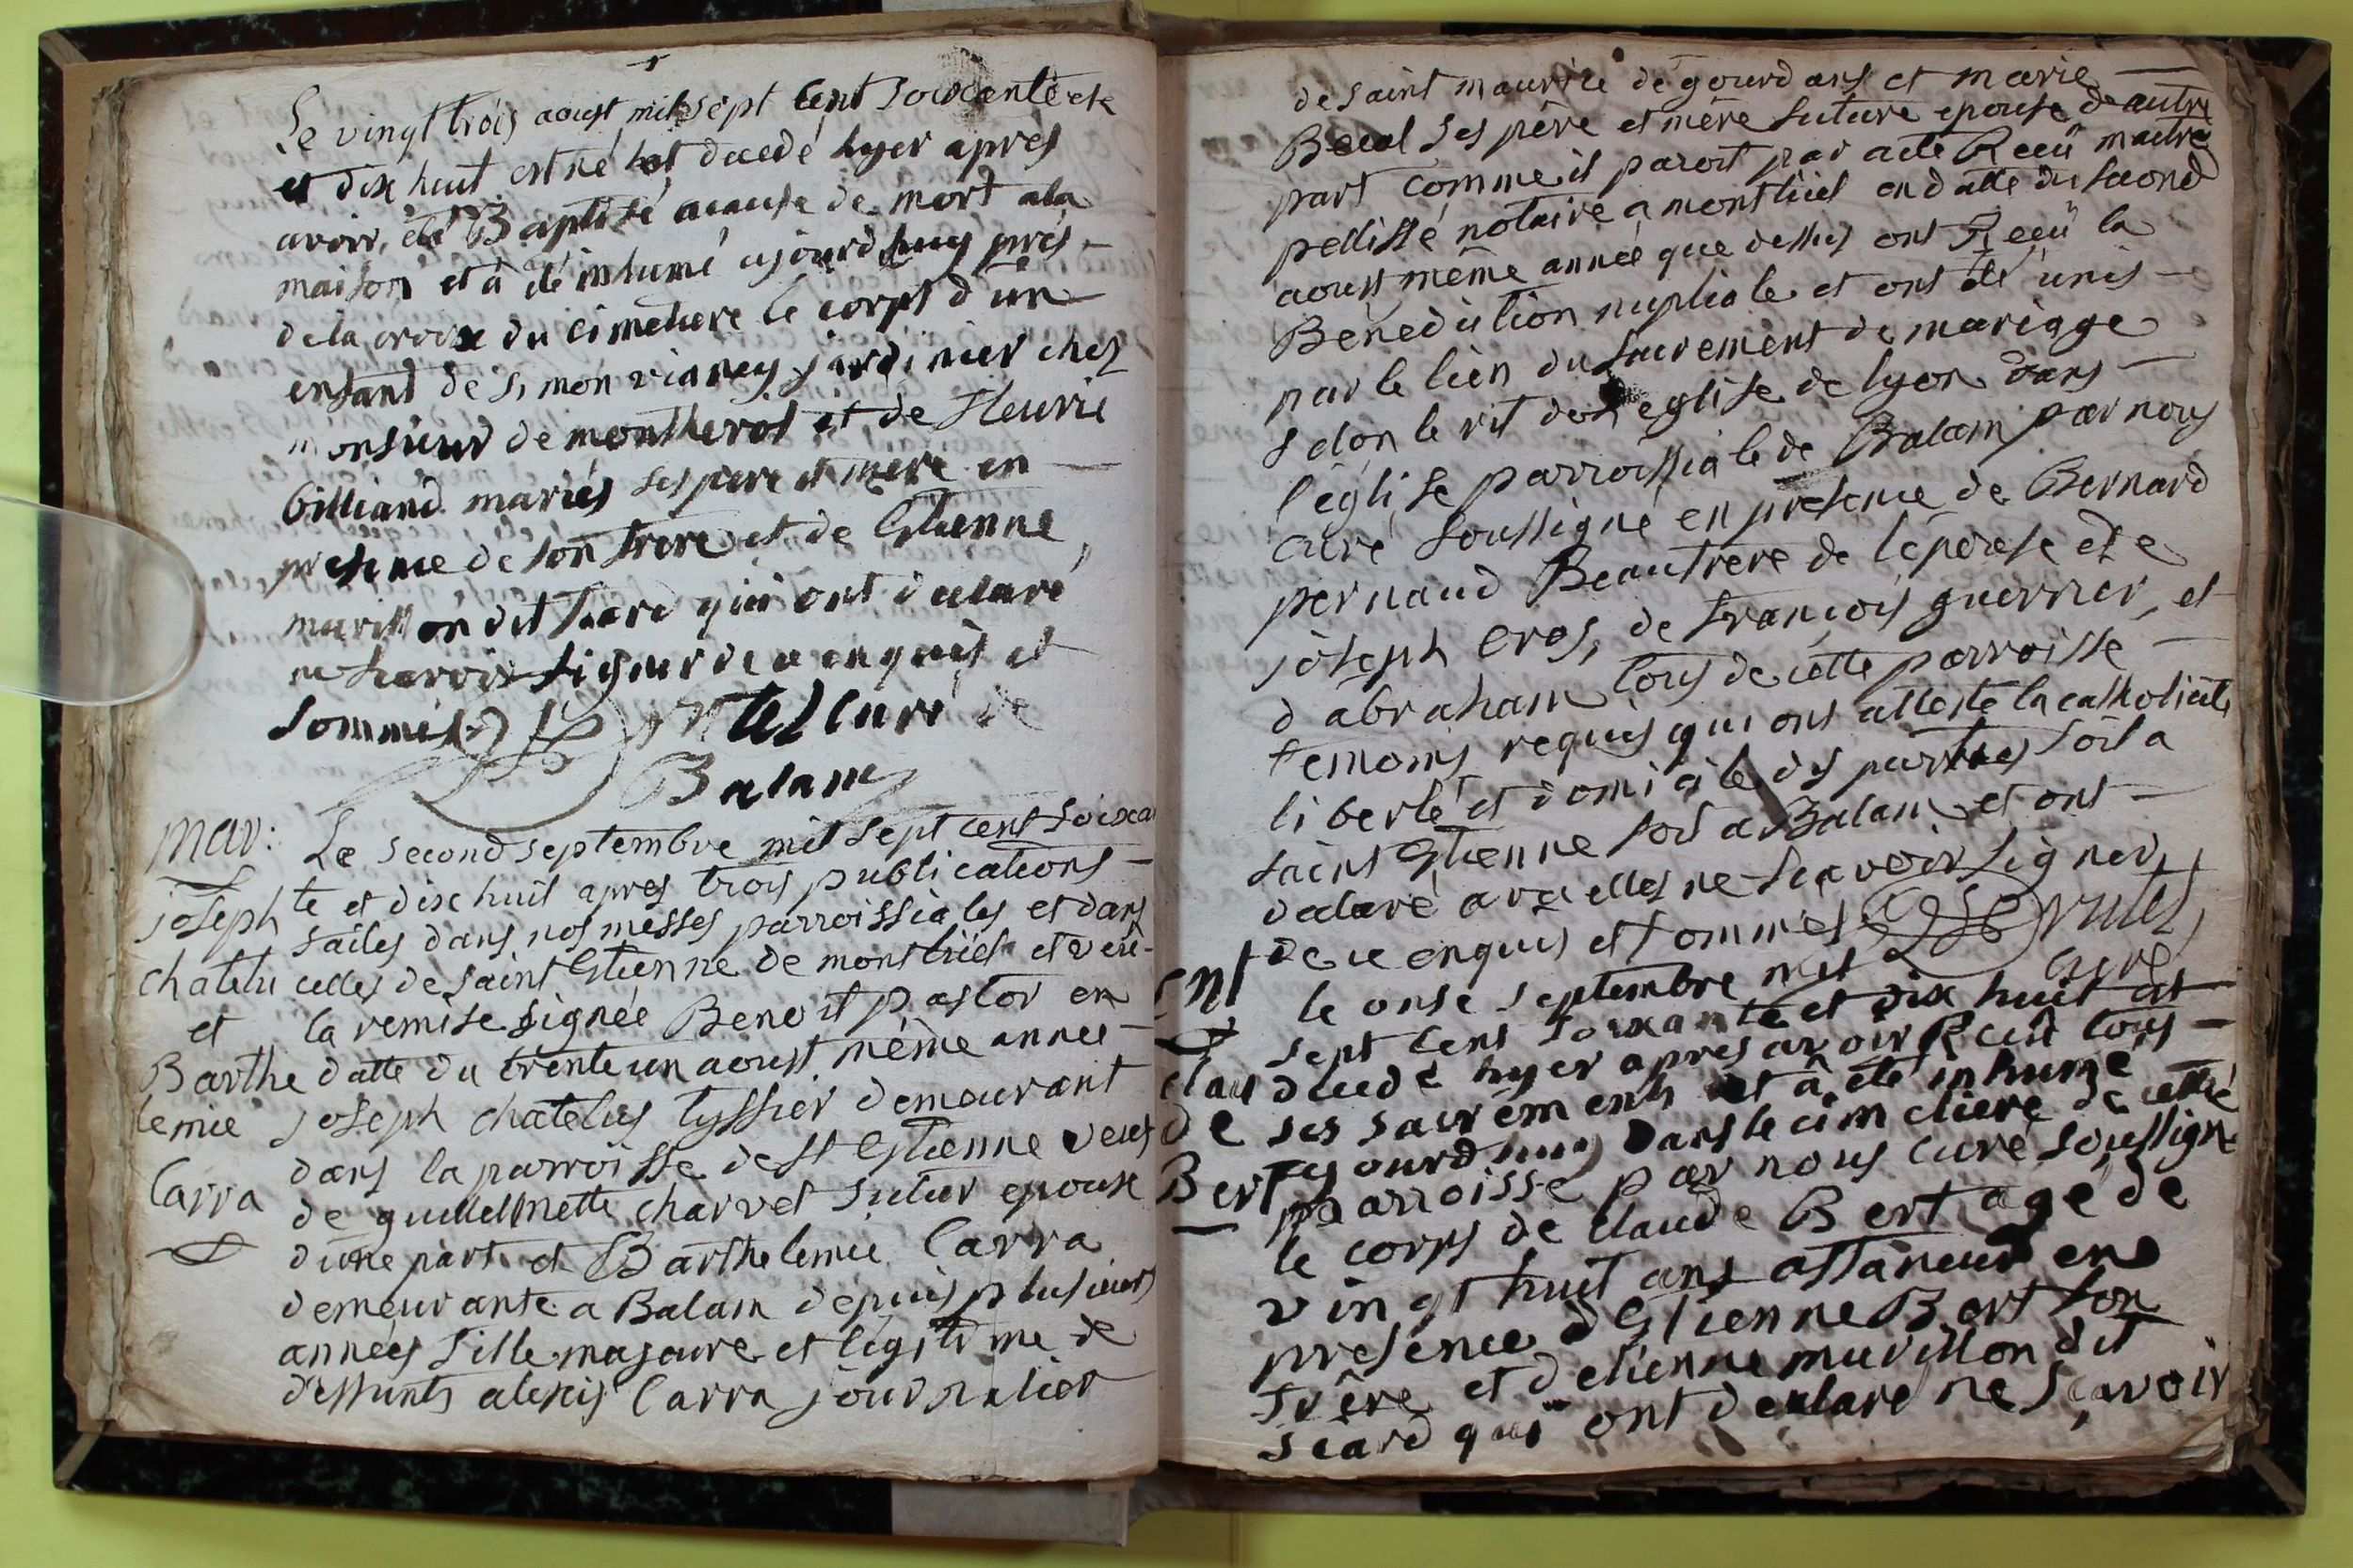 Le vingt trois aoust mil sept cent soixante et
et dix huit est né et decedé hyer apres
avoir été Baptisé acause de mort ala
maison et à été inhumé ajourdhuy près
dela croix du cimetiere le corps d'un
enfant de simon vianey jardinier chez
monsieur de montherot et de fleurie
Gilliand mariés ses pere et mere en
presence de son frere et de Etienne
murillon dit siard qui ont declaré
ne scavoir signer de ce enquis et
sommés curé de
Balan
mar: Le second septembre mil sept cent soixan
joseph te et dix huit apres trois publications
faites dans nos messes parroissiales et dans
chatelu celles de saint Etienne de montluel et veu
et la remise signée Benoit pastor en
Barthe datte du trente un aoust même année
lemie joseph chatelus tyssier demeurant
dans la parroisse de st Etienne veuf
Carra de guillelmette charvet futur epoux
d'une part et Barthelemie Carra
demeurante a Balan depuis plusieurs
années fille majeure et légitime de
deffunts alexis Carra journalier
de saint maurice de gourdans et marie
ses père et mère future epouse d'autre
part comme il paroit par acte Receü maitre
pellissé notaire a montluel en datte du second
aoust même année que dessus ont Receü la
Bénediction nuptiale et ont été unis
par le lien du sacrement de mariage
selon le rit de l'eglise de lyon dans
l'église parroissiale de Balan par nous
curé soussigné en presence de Bernard
pernaud Beaufrere de l'épouse et de
joseph cros, de françois guerrier, et
d'abraham tous de cette parroisse
temoins requis qui ont attesté la catholicité
liberté et domicile des parties soit a
saint Etienne soit a Balan et ont
declaré avec elles ne scavoir signer
de ce enquis et sommés
curé
ent le onse septembre mil
sept cent soixante et dix huit est
clau decedé hyer apres avoir Receü tous
de ses sacrements et à été inhumé
ajourdhuy dans le cimetiere de cette
Bert parroisse par nous curé soussigné
le corps de claude Bert agé de
vingt huit ans affaneur en
presence d'Etienne Bert son
frère et d'etienne murillon dit
siard qui ont declaré ne sçavoir